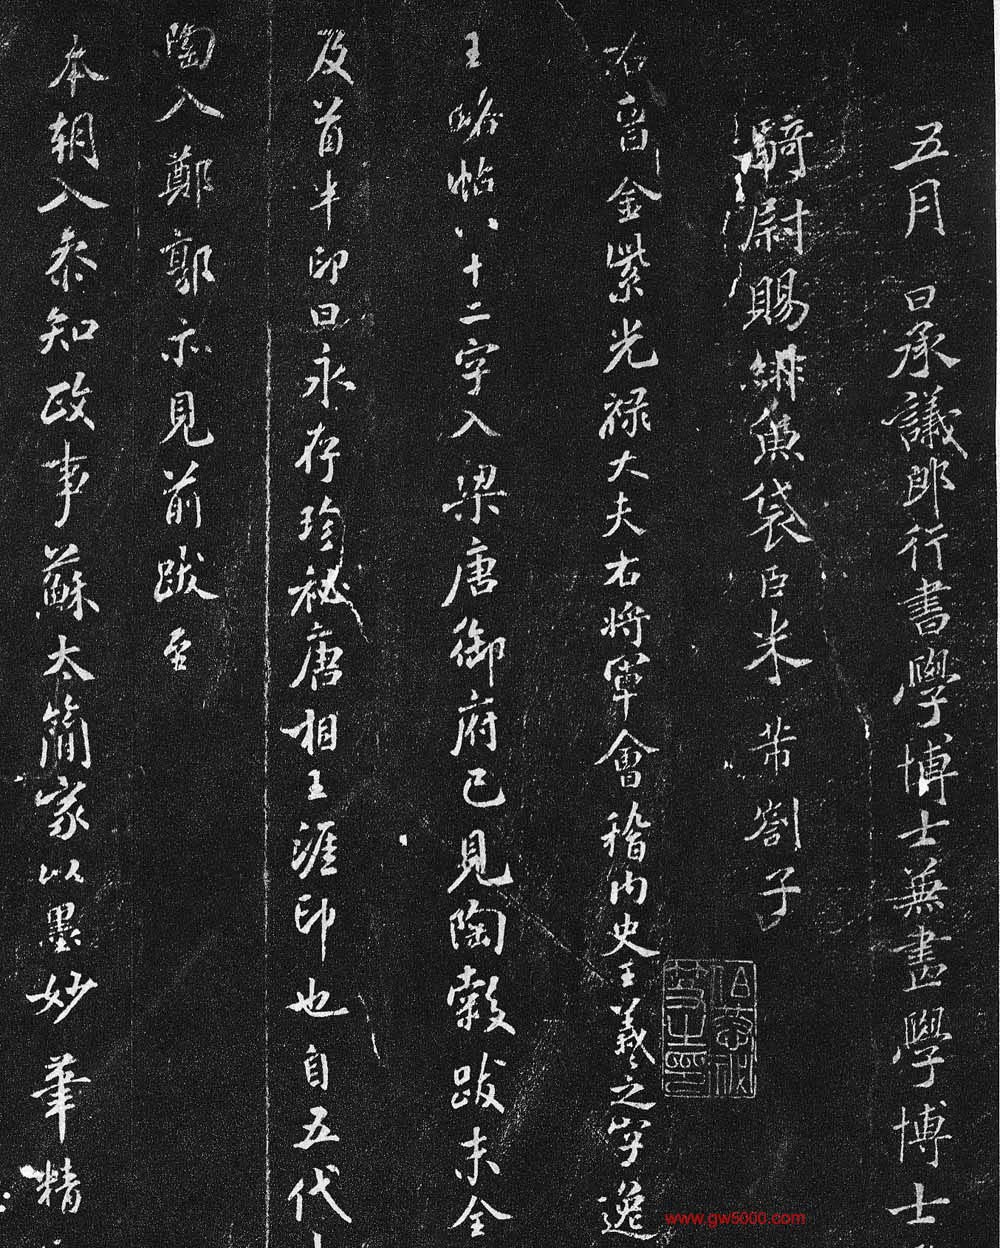 五月 日承議郎行書學博士兼畫學博士
騎尉賜緋魚袋臣米芾劄子
右晉金紫光祿大夫右將軍會稽内史王羲之字逸
王略帖八十二字入梁唐御府已見陶穀跋末全
及首半印曰永存珍秘唐相王涯印也自五代
陶入鄭郭亦見前跋至
本朝入叅知政事蘇太簡家以墨妙筆精
www.gw5000.com